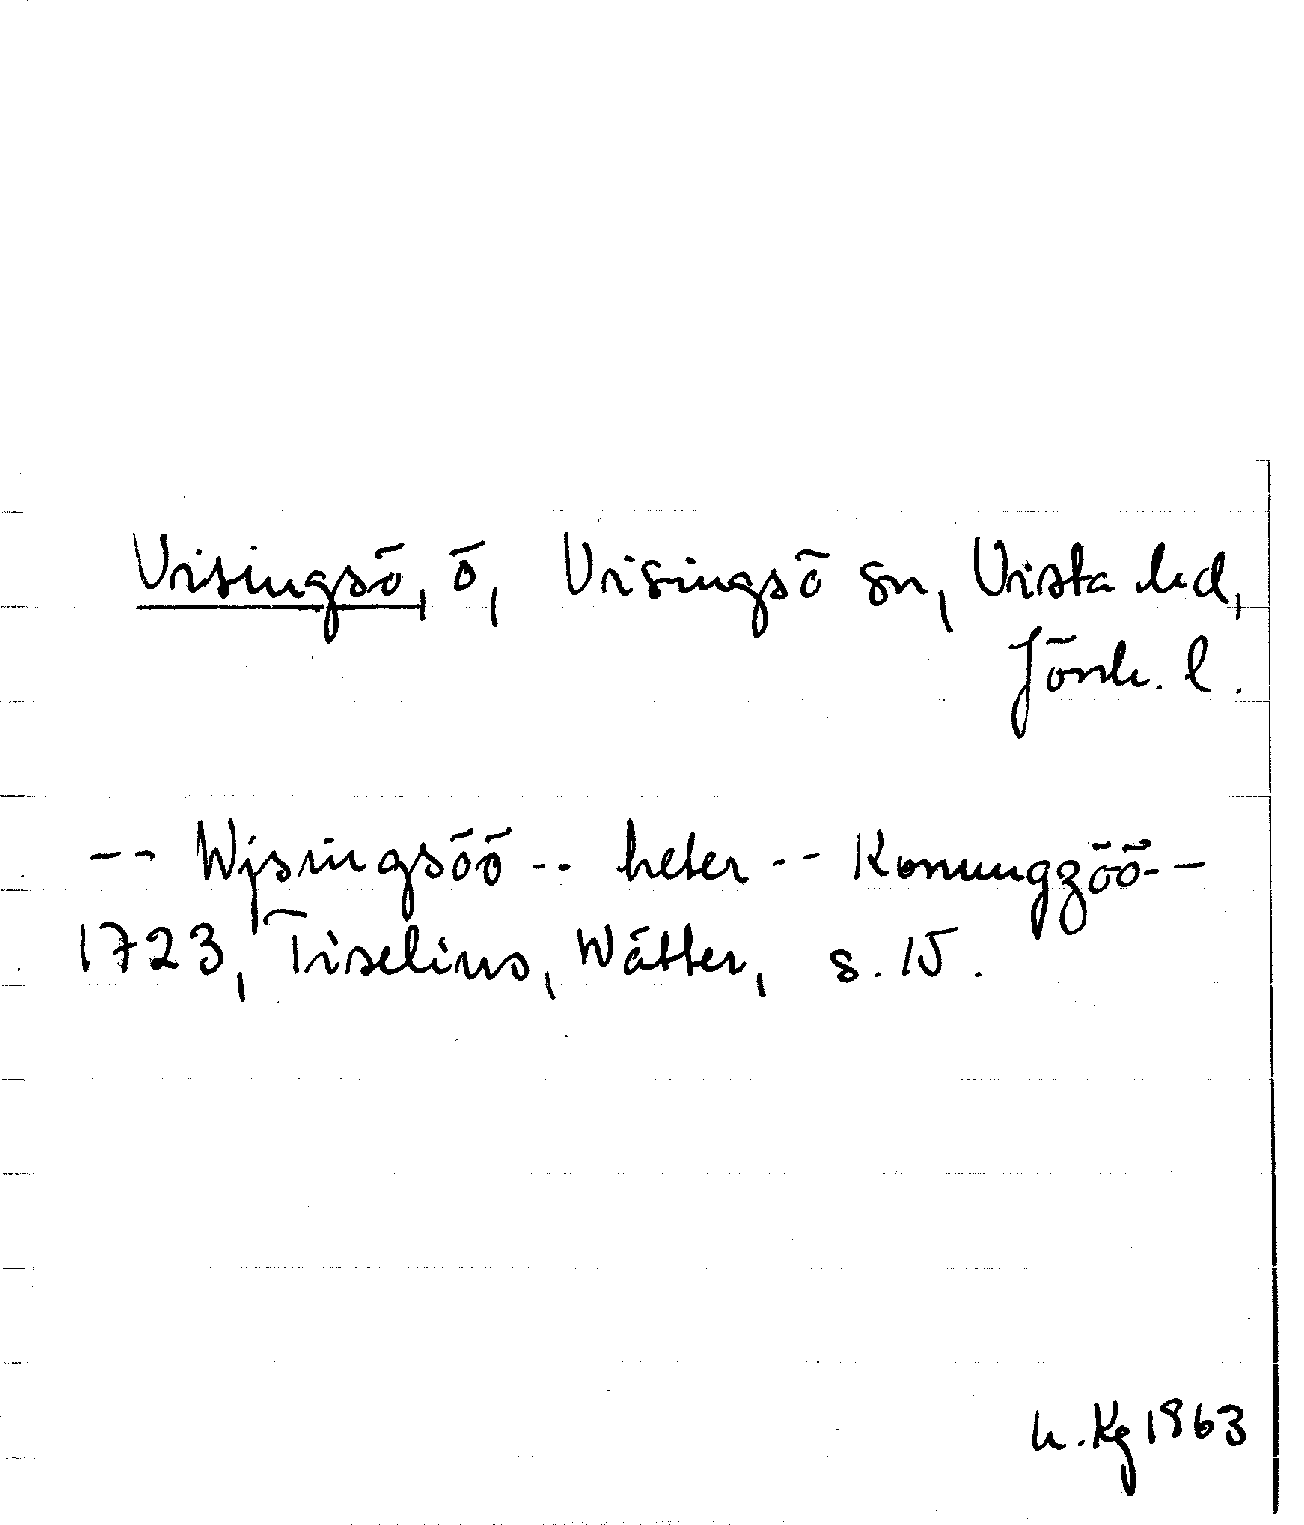 Visingsö, ö, Visingsö sn, Vista hd,
Jönk. l.
-- Wjsingsöö -- heter -- Konungzöö --
1723, Tiselius, Wätter, s. 15.
h. Kg 1963